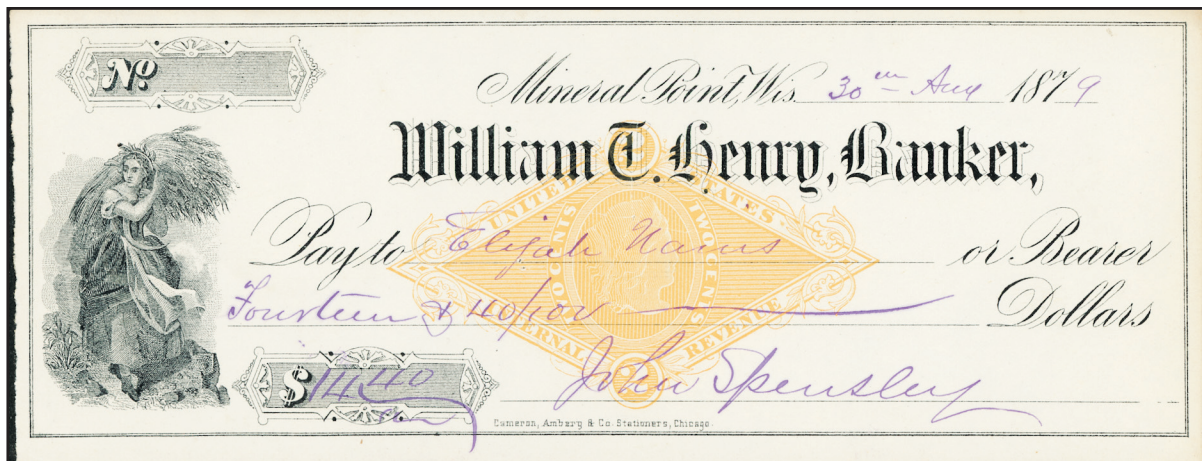 No.
Mineral Point, Wis. 30th Aug 1879
William T. Henry, Banker,
UNITED STATES
TWO CENTS
TWO CENTS
INTERNAL REVENUE
2
2
Pay to Elijah or Bearer
Fourteen & 40/100 Dollars
$14 40
John Spensley
Cameron, Amberg & Co. Stationers, Chicago.